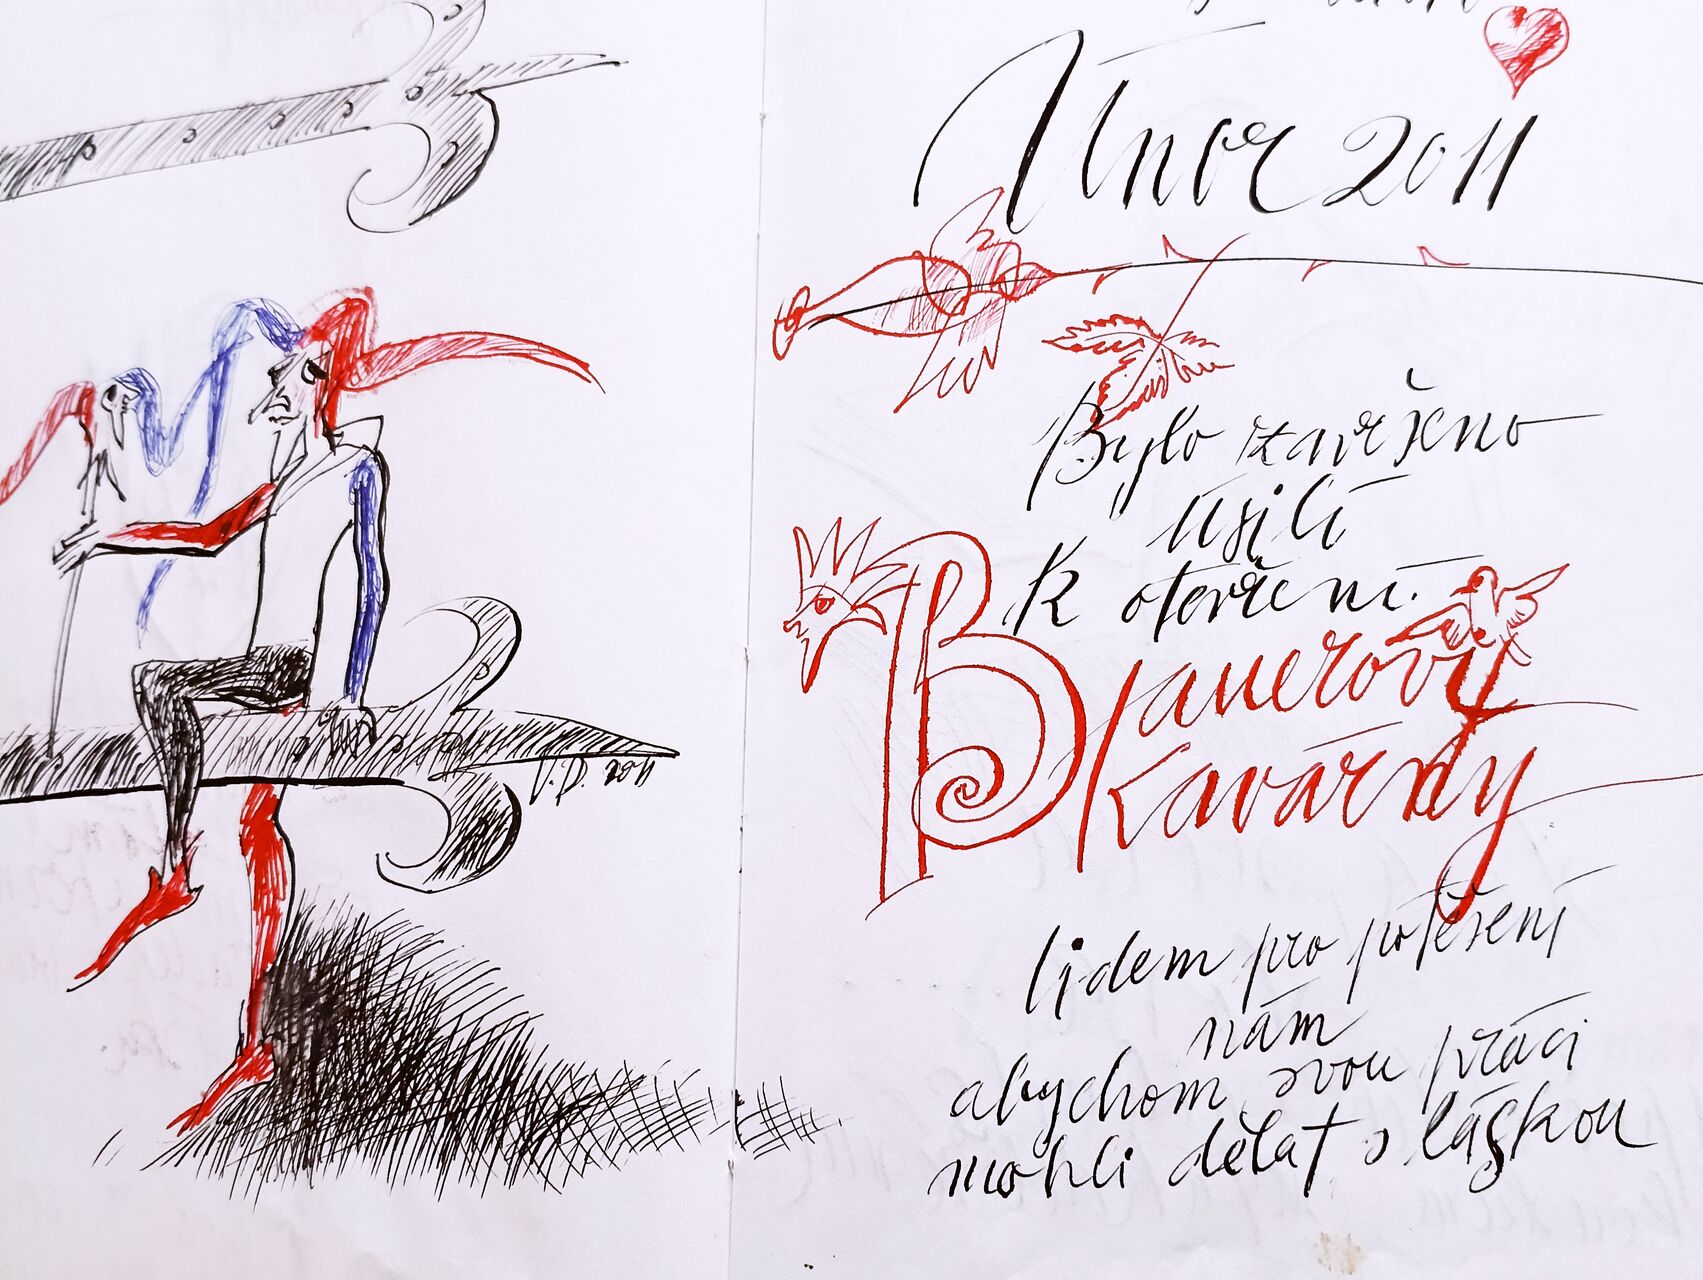 Únor 2011
Bylo završeno
úsilí
K otevření
Bauerovy
kavárny
lidem pro potěšení
nám
abychom svou práci
mohli dělat s láskou
V.P. 2011